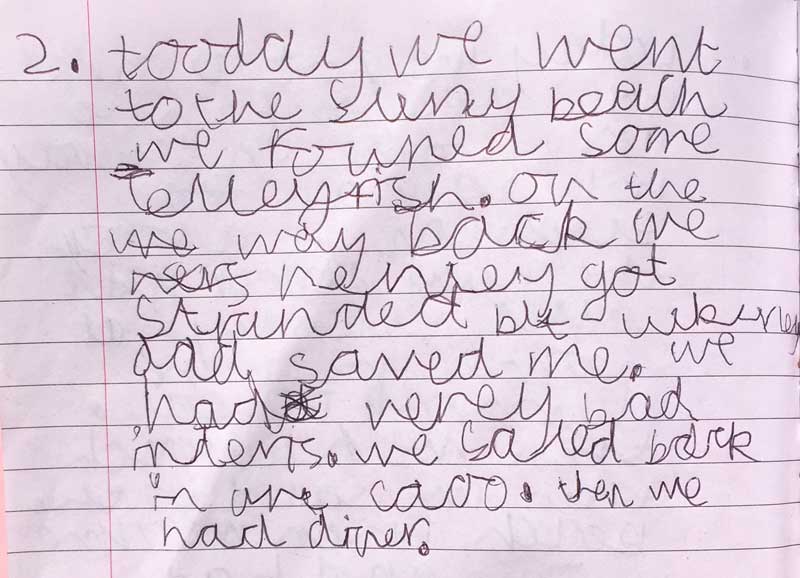 2. tooday we went
to the suny beach
we founed some
telleyfish. on the
we way back we
nenley got
stranded but lukerley
dad saved me. we
had verey bad
inderis. we saled back
in are canoo. then we
had diner.